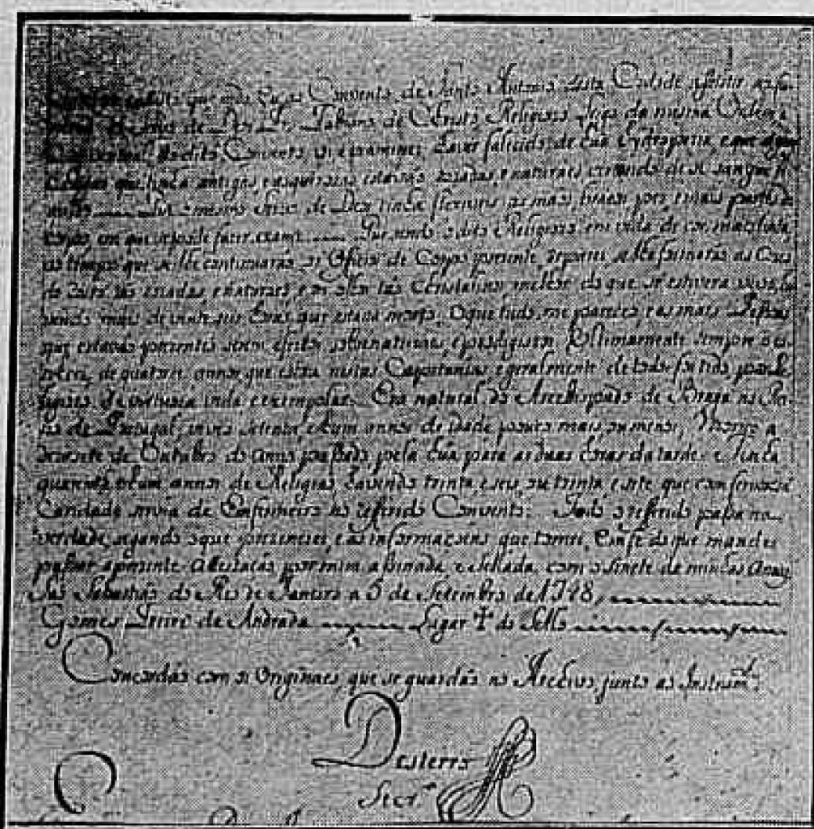 que indo Eu ao Convento de Santo Antonio desta Cidade assistir ao fu-
do Servo de Deos Fr. Fabiano de Christo Religioso Leigo da mesma Ordem, e
Convento, vi, e examinei, haver falecido de hua Hydropezia, e que
que tinha antigas, e asquerosas estavão saradas, e naturaes correndo de si sangue
mesmo Servo de Deos tinha flexiveis as mãos, braços, pés, e mais partes do
corpo, em que se pode fazer exame Por unido o dito Religioso em vida de cor macilenta,
ao tempo que se lhe continuarão os Officios de Corpo prezente reparei, se lhe formarão as Cores
do rosto tão rosadas, e naturaes, e os olhos tão Christalinos melhor do que se estivera vivo, ha-
vendo mais de vinte seis horas que estava morto, o que tudo me pareceo, e as mais Pessoas
que estavão prezentes serem effeitos sobrenaturaes, e prodigiosos. Ultimamente sempre o
de quatorze annos que estou nestas Capitanias e geralmente de todos foi tido por Re-
ligioso de virtuosa vida e exemplar. Era natural do Arcebispado de Braga no Rei-
no de Portugal, teria setenta e hum annos de idade pouco mais ou menos; Morreo a
dezasete de Outubro do anno passado pela hua para as duas horas da tarde, e tinha
quarenta e hum annos de Religião havendo trinta e seis, ou trinta e sete que com fervorosa
Caridade servia de Enfermeiro no refferido Convento. Todo o refferido passa na
verdade, segundo o que prezenciei, e as informaçoens que tomei. Em fé do que mandei
passar a prezente Attestação por mim assinada e sellada com o Sinete de minhas Armas
São Sebastião do Rio de Janeiro a 5 de Setembro de 1748
Gomes Freire de Andrada Lugar † do Sello
Concordão com os Originaes, que se guardão no Archivo, junto ao Instrom.to
Desterro
Secr.o